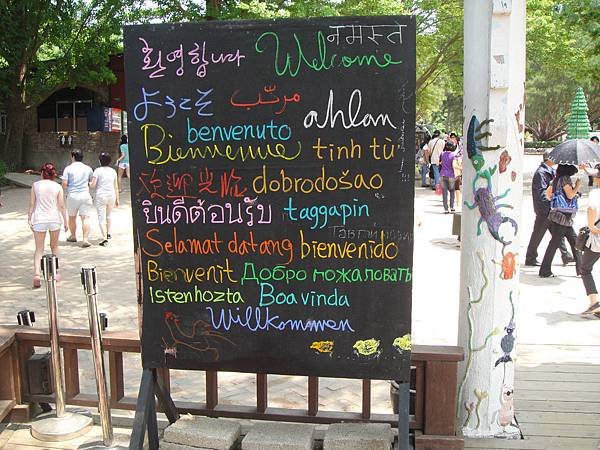 환영합니다 Welcome नमस्ते
ようこそ ahlan
benvenuto
Bienvenue tinh tù
dobrodošao
ยินดีต้อนรับ taggapin
Selamat datang bienvenido
Bienvenit Добро пожаловать
Istenhozta Boa vinda
Willkommen